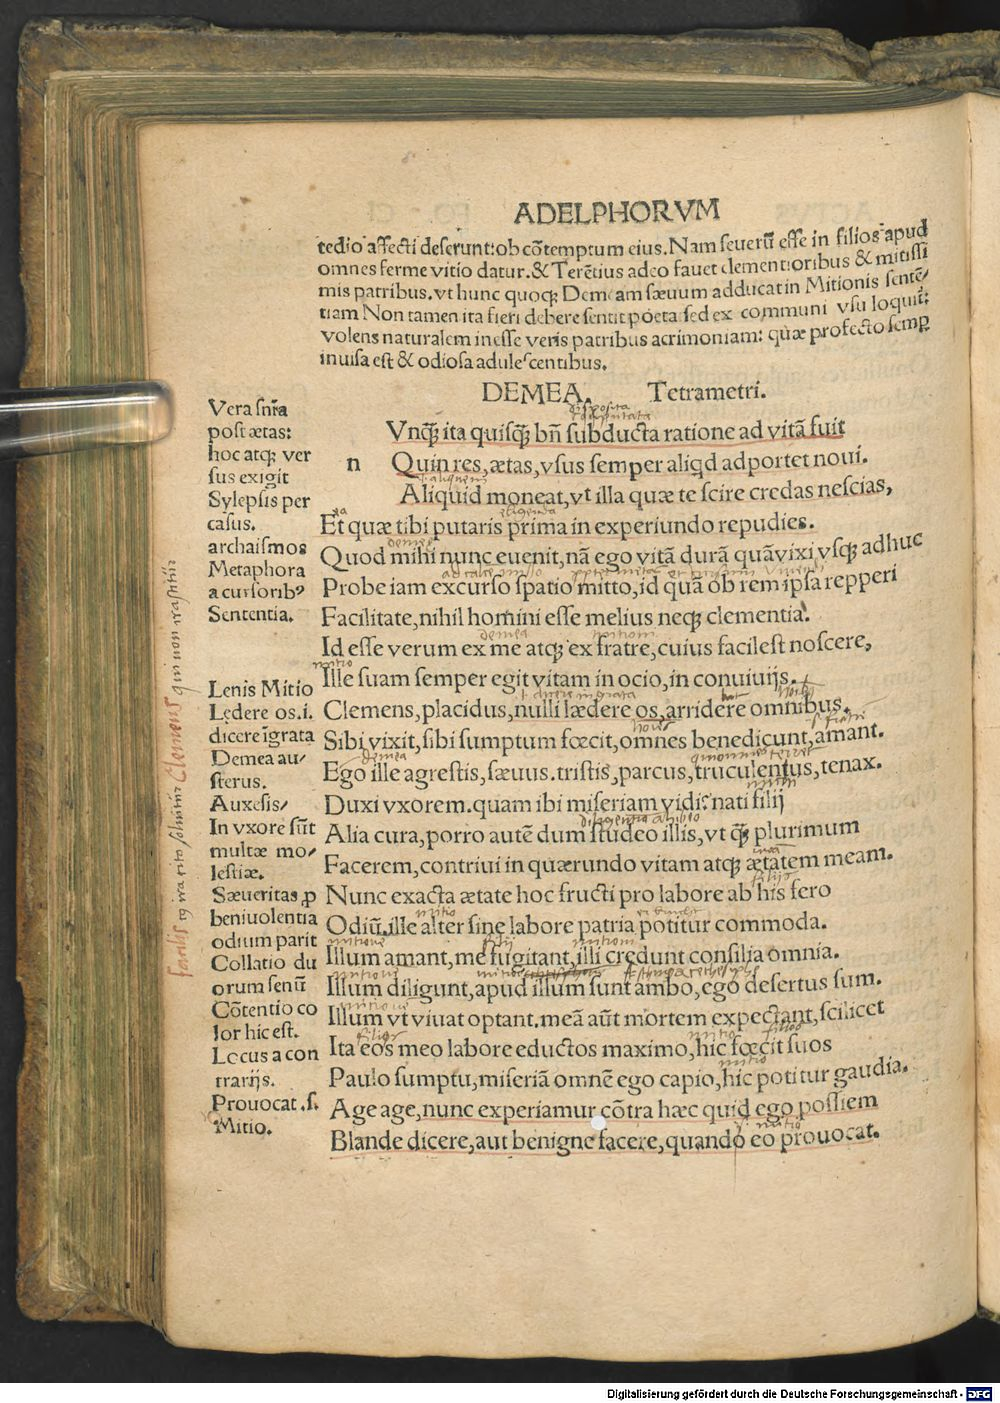 ADELPHORVM
tedio affecti deserunt: ob cōtemptum eius. Nam seuerū esse in filios apud
omnes ferme vitio datur. & Terētius adeo fauet clementioribus & mitissi
mis patribus. vt hunc quoqꝫ Demeam sæuum adducat in Mitionis sentē/
tiam Non tamen ita fieri debere sentit poeta sed ex communi vsu loquit̃:
volens naturalem inesse veris patribus acrimoniam: quæ profecto semꝑ
inuisa est & odiosa adulescentibus.
DEMEA. Tetrametri.
Vnqꝫ̃ ita quisqꝫ̃ bñ subducta ratione ad vitā fuit
n Quin res, ætas, vsus semper aliqd adportet noui.
Aliquid moneat, vt illa quæ te scire credas nescias,
Et quæ tibi putaris prima in experiundo repudies.
Quod mihi nunc euenit, nā ego vitā durā quāvixi vsqꝫ adhuc
Probe iam excurso spatio mitto, id quā ob rem ipsa repperi
Facilitate, nihil homini esse melius neqꝫ clementia.
Id esse verum ex me atqꝫ ex fratre, cuius facilest noscere,
Ille suam semper egit vitam in ocio, in conuiuijs.
Clemens, placidus, nulli lædere os, arridere omnibus.
Sibi vixit, sibi sumptum fœcit, omnes benedicunt, amant.
Ego ille agrestis, sæuus. tristis, parcus, truculentus, tenax.
Duxi vxorem. quam ibi miseriam vidi? nati filij
Alia cura, porro autē dum studeo illis, vt qꝫ̃ plurimum
Facerem, contriui in quærundo vitam atqꝫ ætatem meam.
Nunc exacta ætate hoc fructi pro labore ab his fero
Odiū. ille alter sine labore patria potitur commoda.
Illum amant, me fugitant, illi credunt consilia omnia.
Illum diligunt, apud illum sunt ambo, ego desertus sum.
Illum vt viuat optant. meā aūt mortem expectant, scilicet
Ita eos meo labore eductos maximo, hic fœcit suos
Paulo sumptu, miseriā omnē ego capio, hic potitur gaudia.
Age age, nunc experiamur cōtra hæc quid ego possiem
Blande dicere, aut benigne facere, quando eo prouocat.
Vera snĩa
post ætas:
hoc atqꝫ ver
sus exigit
Sylepsis per
casus.
archaismos
Metaphora
a cursoribꝰ
Sententia.
Lenis Mitio
Ledere os .i.
dicere īgrata
Demea au/
sterus.
Auxesis/
In vxore sūt
multæ mo/
lestiæ.
Sæueritas ꝓ
beniuolentia
odium parit
Collatio du
orum senū
Cōtentio co
lor hic est.
Locus a con
trarijs.
Prouocat .s.
Mitio.
disposita
computata
demee
demea
mitio
demea
filijs
mitio
mitione
filij
mitioni
filios
mitio
mitio
mitio
Digitalisierung gefördert durch die Deutsche Forschungsgemeinschaft - DFG